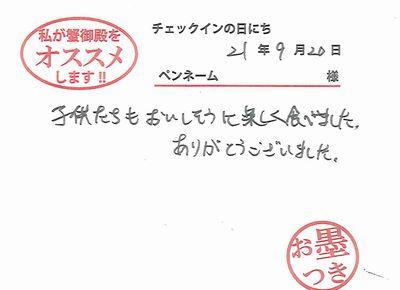 私が蟹御殿を
オススメ
します!!
チェックインの日にち
21年9月20日
ペンネーム 様
子供たちもおいしそうに楽しく食べました。
ありがとうございました。
お墨
つき